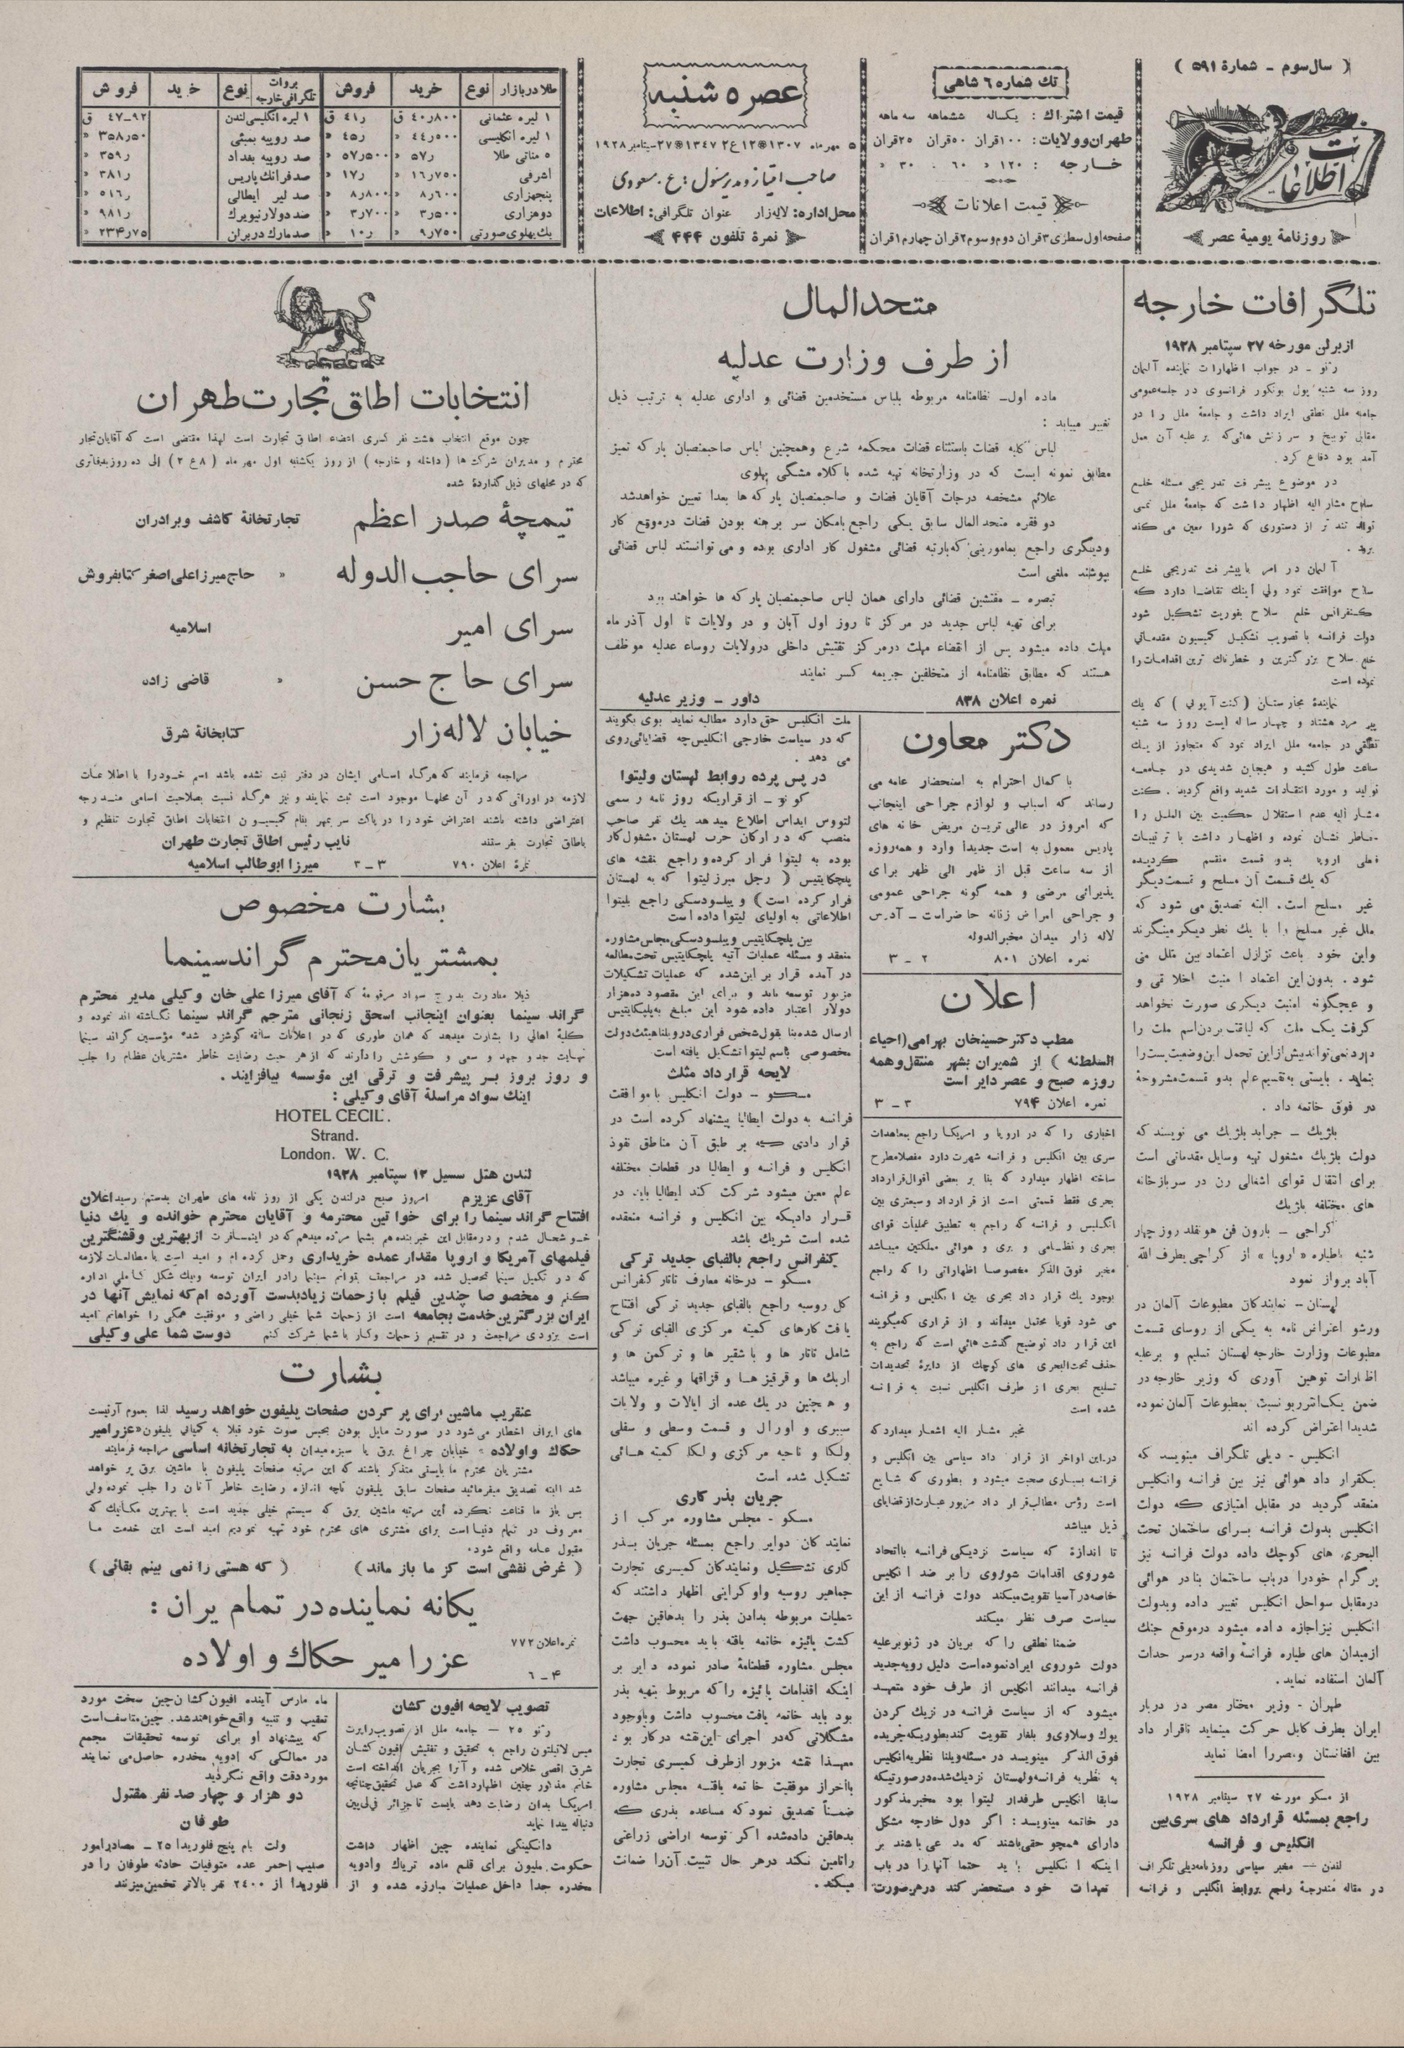 ( سال سوم ـ شمارهٔ ۵۹۱ )
اطلاعات
روزنامهٔ یومیهٔ عصر
تك شماره ۶ شاهی
قیمت اشتراك : یکساله ششماهه سه ماهه
طهران وولایات: ۱۰۰قران ۵۰قران ۲۵قران
خـارجه : ۱۲۰ » ۶۰ . ۳۰ »
قیمت اعلانات
صفحه اول سطری ۳قران دوم و سوم ۲قران چهارم ۱قران
عصر ۵ شنبه
۵ مهرماه ۱۳۰۷ ❋ ۱۲ ع ۲ ۱۳۴۷ ❋ ۲۷ سپتامبر ۱۹۲۸
صاحب امتیاز و مدیر مسئول : ع . مسعودی
محل اداره: لاله زار عنوان تلگرافی: اطلاعات
نمرهٔ تلفون ۴۴۴
طلا در بازار نوع خرید فروش
۱ لیره عثمانی ۴۰٫۸۰۰ ق ۴۱٫ ق
۱ لیره انگلیسی ۴۴٫۵۰۰ » ۴۵٫ »
۵ مناتی طلا ۵۷٫ » ۵۷٫۵۰۰ »
اشرفی ۱۶٫۷۵۰ » ۱۷٫ »
پنجهزاری ۸٫۶۰۰ » ۸٫۸۰۰ »
دوهزاری ۳٫۵۰۰ » ۳٫۷۰۰ »
یك پهلوی صورتی ۹٫۷۵۰ » ۱۰٫ »
بروات تلگرافی خارجه نوع خرید فروش
۱ لیره انگلیسی لندن ۴۷ـ۹۲ ق
صد روپیه بمبئی ۳۵۸٫۵۰ »
صد روپیه بغداد ۳۵۹٫ »
صد فرانك پاریس ۳۸۱٫ »
صد لیر ایطالی ۵۱۶٫ »
صد دولار نیویرك ۹۸۱٫ »
صد مارك در بران ۲۳۴٫۷۵ »
تلگرافات خارجه
از برلن مورخه ۲۷ سپتامبر ۱۹۲۸
ژنو ـ در جواب اظهارات نماینده آلمان
روز سه شنبه پول بونکور فرانسوی در جلسه عمومی
جامعه ملل نطقی ایراد داشت و جامعهٔ ملل را در
مقابل توبیخ و سرزنش هائی که بر علیه آن بعمل
آمده بود دفاع کرد .
در موضوع پیشرفت تدریجی مسئله خلع
سلاح مشار الیه اظهار داشت که جامعهٔ ملل نمی
تواند تند تر از دستوری که شورا معین می کند
برود .
آلمان در امر با پیشرفت تدریجی خلع
سلاح موافقت نمود ولی اینك تقاضا دارد که
کنفرانس خلع سلاح بفوریت تشکیل شود
دولت فرانسه با تصویب تشکیل کمیسیون مقدماتی
خلع سلاح بزرگترین و خطرناك ترین اقدامات را
نموده است
نمایندهٔ مجارستان ( کنت آپونی ) که یك
پیر مرد هشتاد و چهار ساله ایست روز سه شنبه
نطقی در جامعه ملل ایراد نمود که متجاوز از یك
ساعت طول کشید و هیجان شدیدی در جامعه
تولید و مورد انتقادات شدید واقع گردید . کنت
مشار الیه عدم استقلال حکمیت بین الملل را
خاطر نشان نموده و اظهار داشت با ترتیبات
فعلی اروپا بدو قسمت منقسم گردیده
که یك قسمت آن مسلح و قسمت دیگر
غیر مسلح است. البته تصدیق می شود که
ملل غیر مسلح را با یك نظر دیگر مینگرند
و این خود باعث تزلزل اعتماد بین ملل می
شود . بدون این اعتماد امنیت اخلاقی و
و هیچگونه امنیت دیگری صورت نخواهد
گرفت یك ملت که لیاقت بردن اسم ملت را
دارد نمی تواند بیش از این تحمل این وضعیت را
بنماید . بایستی به تقسیم عالم بدو قسمت مشروحهٔ
در فوق خاتمه داد .
بلژیك ـ جراید بلژیك می نویسند که
دولت بلژیك مشغول تهیه وسایل مقدماتی است
برای انتقال قوای اشغالی رن در سربازخانه
های مختلفه بلژیك
کراچی ـ بارون فن هونفلد روز چهار
شنبه باطیاره « اروپا » از کراچی بطرف الله
آباد پرواز نمود
لهستان ـ نمایندگان مطبوعات آلمان در
ورشو اعتراض نامه به یکی از روسای قسمت
مطبوعات وزارت خارجه لهستان تسلیم و بر علیه
اظهارات توهین آوری که وزیر خارجه در
ضمن یك انترویو نسبت بمطبوعات آلمان نموده
شدیدا اعتراض کرده اند
انگلیس ـ دیلی تلگراف مینویسد که
یکقرار داد هوائی نیز بین فرانسه و انگلیس
منعقد گردید در مقابل امتیازی که دولت
انگلیس بدولت فرانسه برای ساختمان تحت
البحری های کوچك داده دولت فرانسه نیز
پرگرام خود را در باب ساختمان بنادر هوائی
در مقابل سواحل انگلیس تغییر داده و بدولت
انگلیس نیز اجازه داده میشود در موقع جنك
از میدان های طیاره فرانسهٔ واقعه در سر حدات
آلمان استفاده نماید .
طهران ـ وزیر مختار مصر در دربار
ایران بطرف کابل حرکت مینماید تا قرار داد
بین افغانستان و مصر را امضا نماید
از مسکو مورخه ۲۷ سپتامبر ۱۹۲۸
راجع بمسئله قرارداد های سری بین
انگلیس و فرانسه
لندن ـ مخبر سیاسی روزنامه دیلی تلگراف
در مقاله مندرجهٔ راجع بروابط انگلیس و فرانسه
متحد المال
از طرف وزارت عدلیه
ماده اول ـ نظامنامه مربوطه بلباس مستخدمین قضائی و اداری عدلیه به ترتیب ذیل
تغییر مییابد :
لباس کلیه قضات باستثناء قضات محکمه شرع و همچنین لباس صاحبمنصبان پارکه تمیز
مطابق نمونه ایست که در وزارتخانه تهیه شده با کلاه مشگی پهلوی
علائم مشخصه درجات آقایان قضات و صاحبمنصبان پارکه ها بعدا تعیین خواهد شد
دو فقره متحد المال سابق یکی راجع بامکان سر برهنه بودن قضات در موقع کار
و دیگری راجع بمامورینی که بارتبه قضائی مشغول کار اداری بوده و می توانستند لباس قضائی
بپوشند ملغی است
تبصره ـ مفتشین قضائی دارای همان لباس صاحبمنصبان پارکه ها خواهند بود
برای تهیه لباس جدید در مرکز تا روز اول آبان و در ولایات تا اول آذر ماه
مهلت داده میشود پس از انقضاء مهلت در مرکز تفتیش داخلی در ولایات روساء عدلیه موظف
هستند که مطابق نظامنامه از متخلفین جریمه کسر نمایند
نمره اعلان ۸۳۸ داور ـ وزیر عدلیه
دکتر معاون
با کمال احترام به استحضار عامه می
رساند که اسباب و لوازم جراحی اینجانب
که امروز در عالی ترین مریض خانه های
پاریس معمول به است جدیداً وارد و همه روزه
از سه ساعت قبل از ظهر الی ظهر برای
پذیرائی مرضی و همه گونه جراحی عمومی
و جراحی امراض زنانه حاضر است ـ آدرس
لاله زار میدان مخبر الدوله
نمره اعلان ۸۰۱ ۲ ـ ۳
اعلان
مطب دکتر حسینخان بهرامی (احیاء
السلطنه ) از شمیران بشهر منتقل و همه
روزه صبح و عصر دایر است
نمره اعلان ۷۹۴ ۳ ـ ۳
اخباری را که در اروپا و امریکا راجع بمعاهدات
سری بین انگلیس و فرانسه شهرت دارد مفصلا مطرح
ساخته اظهار میدارد که بنا بر بعضی اقوال قرارداد
بحری فقط قسمتی است از قرارداد وسیعتری بین
انگلیس و فرانسه که راجع به تطبیق عملیات قوای
بحری و نظامی و بری و هوائی مملکتین میباشد
مخبر فوق الذکر مخصوصا اظهاراتی را که راجع
بوجود یك قرار داد بحری بین انگلیس و فرانسه
می شود قویا محتمل میداند و از قراری که میگویند
این قرار داد توضیح گذشت هائی است که راجع به
حذف تحت البحری های کوچك از دایرهٔ تحدیدات
تسلیح بحری از طرف انگلیس نسبت به فرانسه
شده است
مخبر مشار الیه اشعار میدارد که
در این اواخر از قرار داد سیاسی بین انگلیس و
فرانسه بسیاری صحبت میشود و بطوری که شایع
است رؤس مطالب قرار داد مزبور عبارت از قضایای
ذیل میباشد
تا اندازهٔ که سیاست نزدیکی فرانسه با اتحاد
شوروی اقدامات شوروی را بر ضد انگلیس
خاصه در آسیا تقویت میکند دولت فرانسه از این
سیاست صرف نظر میکند
ضمنا نطقی را که بریان در ژنو بر علیه
دولت شوروی ایراد نموده است دلیل رویه جدید
فرانسه میدانند انگلیس از طرف خود متعهد
میشود که از سیاست فرانسه در نزیك کردن
یوك وسلاوی و بلغار تقویت کند بطوریکه جریده
فوق الذکر مینویسد در مسئله ویلنا نظریه انگلیس
به نظریه فرانسه و لهستان نزدیك شده در صورتیکه
سابقا انگلیس طرفدار لیتوا بود مخبر مذکور
در خاتمه مینویسد : اگر دول خارجه مشکل
دارای همچو حقی باشند که مدعی باشند بر
اینکه انگلیس باید حتما آنها را در باب
تعهدات خود مستحضر کند در هر صورت
ملت انگلیس حق دارد مطالبه نماید بوی بگویند
که در سیاست خارجی انگلیس چه قضایائی روی
می دهد .
در پس پرده روابط لهستان و لیتوا
کونو ـ از قراریکه روز نامه رسمی
لتووس ایداس اطلاع میدهد یك نفر صاحب
منصب که در ارکان حرب لهستان مشغول کار
بوده به لیتوا فرار کرده و راجع نقشه های
پلچکایتیس ( رجل مبرز لیتوا که به لهستان
فرار کرده است ) و پیلسودسکی راجع بلیتوا
اطلاعاتی به اولیای لیتوا داده است
بین پلچکایتیس و پیلسودسکی مجلس مشاوره
منعقد و مسئله عملیات آتیه پلچکایتیس تحت مطالعه
در آمده قرار بر این شده که عملیات تشکیلات
مزبور توسعه یابد و برای این مقصود ده هزار
دولار اعتبار داده شود این مبلغ به پلیکایتیس
ارسال شده بنا بقول شخص فراری در ویلنا هیئت دولت
مخصوصی باسم لیتوا تشکیل یافته است
لایحه قرار داد مثلث
مسکو ـ دولت انگلیس با موافقت
فرانسه به دولت ایطالیا پیشنهاد کرده است در
قرار دادی که بر طبق آن مناطق نفوذ
انگلیس و فرانسه و ایطالیا در قطعات مختلفه
عالم معین میشود شرکت کند ایطالیا باید در
قرار دادیکه بین انگلیس و فرانسه منعقده
شده است شریك باشد
کنفرانس راجع بالفبای جدید ترکی
مسکو ـ در خانه معارف تاتار کنفرانس
کل روسیه راجع بالفبای جدید ترکی افتتاح
یافت کارهای کمیته مرکزی الفبای ترکی
شامل تاتار ها و باشقیر ها و ترکمن ها و
ازبك ها و قرقیز ها و قزاقها و غیره میباشد
و همچنین در یك عده از ایالات و ولایات
سیبری و اورال و قسمت وسطی و سفلی
ولگا و ناحیه مرکزی ولگا کمیته هائی
تشکیل شده است
جریان بذر کاری
مسکو ـ مجلس مشاوره مرکب از
نمایندگان دوایر راجع بمسئله جریان بذر
کاری تشکیل و نمایندگان کمیسری تجارت
جماهیر روسیه و اوکراینی اظهار داشتند که
عملیات مربوطه بدادن بذر را بدهاقین جهت
کشت پائیزه خاتمه یافته باید محسوب داشت
مجلس مشاوره قطعنامهٔ صادر نموده دایر بر
اینکه اقدامات پائیزه را که مربوط بتهیه بذر
بود باید خاتمه یافت محسوب داشت و باوجود
مشگلاتی که در اجرای این نقشه در کار بود
معهذا نقشه مزبور از طرف کمیسری تجارت
با احراز موفقیت خاتمه یافته مجلس مشاوره
ضمناً تصدیق نمود که مساعده بذری که
بدهاقین داده شده اگر توسعه اراضی زراعتی
را تامین نکند در هر حال تثبیت آن را ضمانت
میکند .
انتخابات اطاق تجارت طهران
چون موقع انتخاب هشت نفر کسری اعضاء اطاق تجارت است لهذا مقتضی است که آقایان تجار
محترم و مدیران شرکت ها ( داخله و خارجه ) از روز یکشنبه اول مهر ماه ( ۸ ع ۲ ) الی ده روز بدفاتری
که در محلهای ذیل گذاردهٔ شده
تیمچهٔ صدر اعظم تجارتخانهٔ کاشف و برادران
سرای حاجب الدوله » حاج میرزا علی اصغر کتابفروش
سرای امیر اسلامیه
سرای حاج حسن » قاضی زاده
خیابان لاله زار کتابخانهٔ شرق
مراجعه فرمایند که هرگاه اسامی ایشان در دفتر ثبت نشده باشد اسم خود را با اطلاعات
لازمه در اوراقی که در آن محلها موجود است ثبت نمایند و نیز هرگاه نسبت بصلاحیت اسامی مندرجه
اعتراضی داشته باشند اعتراض خود را در پاکت سر بمهر بنام کمیسیون انتخابات اطاق تجارت تنظیم و
باطاق تجارت بفرستند نایب رئیس اطاق تجارت طهران
نمرهٔ اعلان ۷۹۰ ۳ ـ ۳ میرزا ابوطالب اسلامیه
بشارت مخصوص
بمشتریان محترم گراند سینما
ذیلا مبادرت بدرج سواد مرقومهٔ که آقای میرزا علی خان وکیلی مدیر محترم
گراند سینما بعنوان اینجانب اسحق زنجانی مترجم گراند سینما نگاشته اند نموده و
کلیهٔ اهالی را بشارت میدهد که همان طوری که در اعلانات سابقه گوشزد شد مؤسسین گراند سینما
نهایت جد و جهد و سعی و کوشش را دارند که از هر حیث رضایت خاطر مشتریان عظام را جلب
و روز بروز بسر پیشرفت و ترقی این مؤسسه بیافزایند .
اینك سواد مراسلهٔ آقای وکیلی :
HOTEL CECIL.
Strand.
London. W. C.
لندن هتل سسیل ۱۳ سپتامبر ۱۹۲۸
آقای عزیزم امروز صبح در لندن یکی از روز نامه های طهران بدستم رسید اعلان
افتتاح گراند سینما را برای خواتین محترمه و آقایان محترم خوانده و یك دنیا
خوشحال شدم و در مقابل این خبر بنده هم بشما مژده میدهم که در این مسافرت از بهترین و قشنگترین
فیلمهای آمریکا و اروپا مقدار عمده خریداری و حمل کرده ام و امید است با مطالعات لازمه
که در تکمیل سینما تحصیل شده در مراجعت بتوانم سینما را در ایران توسعه و بیك شکل کاملی اداره
کنم و مخصوصا چندین فیلم با زحمات زیاد بدست آورده ام که نمایش آنها در
ایران بزرگترین خدمت بجامعه است از زحمات شما خیلی راضی و موفقیت همگی را خواهانم امید
است بزودی مراجعت و در تقسیم زحمات و کار با شما شرکت کنم دوست شما علی وکیلی
بشارت
عنقریب ماشین برای پر کردن صفحات پلیفون خواهد رسید لذا بعموم آرتیست
های ایرانی اخطار می شود در صورت مایل بودن بحبس صوت خود قبلا به کمپانی پلیفون «عزرا میر
حکاك و اولاده » خیابان چراغ برق یا سبزه میدان به تجارتخانه اساسی مراجعه فرمایند
مشتریان محترم ما بایستی متذکر باشند که این مرتبه صفحات پلیفون با ماشین برق پر خواهد
شد البته تصدیق میفرمائید صفحات سابق پلیفون تاچه اندازه رضایت خاطر آنان را جلب نموده ولی
بس باز ما قناعت نکرده این مرتبه ماشین برق که سیستم خیلی جدید است با بهترین مکانیك که
معروف در تمام دنیا است برای مشتری های محترم خود تهیه نمودیم امید است این خدمت ما
مقبول عامه واقع شود.
( غرض نقشی است کز ما باز ماند ) ( که هستی را نمی بینم بقائی )
یکانه نماینده در تمام یران :
نمره اعلان ۷۷۲ عزرا میر حکاك و اولاده
۴ ـ ۶
تصویب لایحه افیون کشان
ژنو ۲۵ ـ جامعه ملل از تصویب راپرت
میس لاتیلتون راجع به تحقیق و تفتیش افیون کشان
شرق اقصی خلاص شده و آنرا بجریان انداخته است
خانم مذکور چنین اظهار داشت که عمل تحقیق چنانچه
امریکا بدان رضایت دهد بایست تا جزائر فیلیپین
دنباله پیدا نماید
دانکینگی نماینده چین اظهار داشت
حکومت ملیون برای قلع ماده تریاك و ادویه
مخدره جدا داخل عملیات مبارزه شده و از
ماه مارس آینده افیون کشان چین سخت مورد
تعقیب و تنبیه واقع خواهند شد. چین متاسف است
که پیشنهاد او برای توسعه تحقیقات مجمع
در ممالکی که ادویه مخدره حاصل می نمایند
مورد دقت واقع نگردید
دو هزار و چهار صد نفر مقتول
طوفان
ولت بام پنیج فلوریدا ۲۵ ـ مصادر امور
صلیب احمر عده متوفیات حادثه طوفان را در
فلوریدا از ۲۴۰۰ نفر بالاتر تخمین میزنند